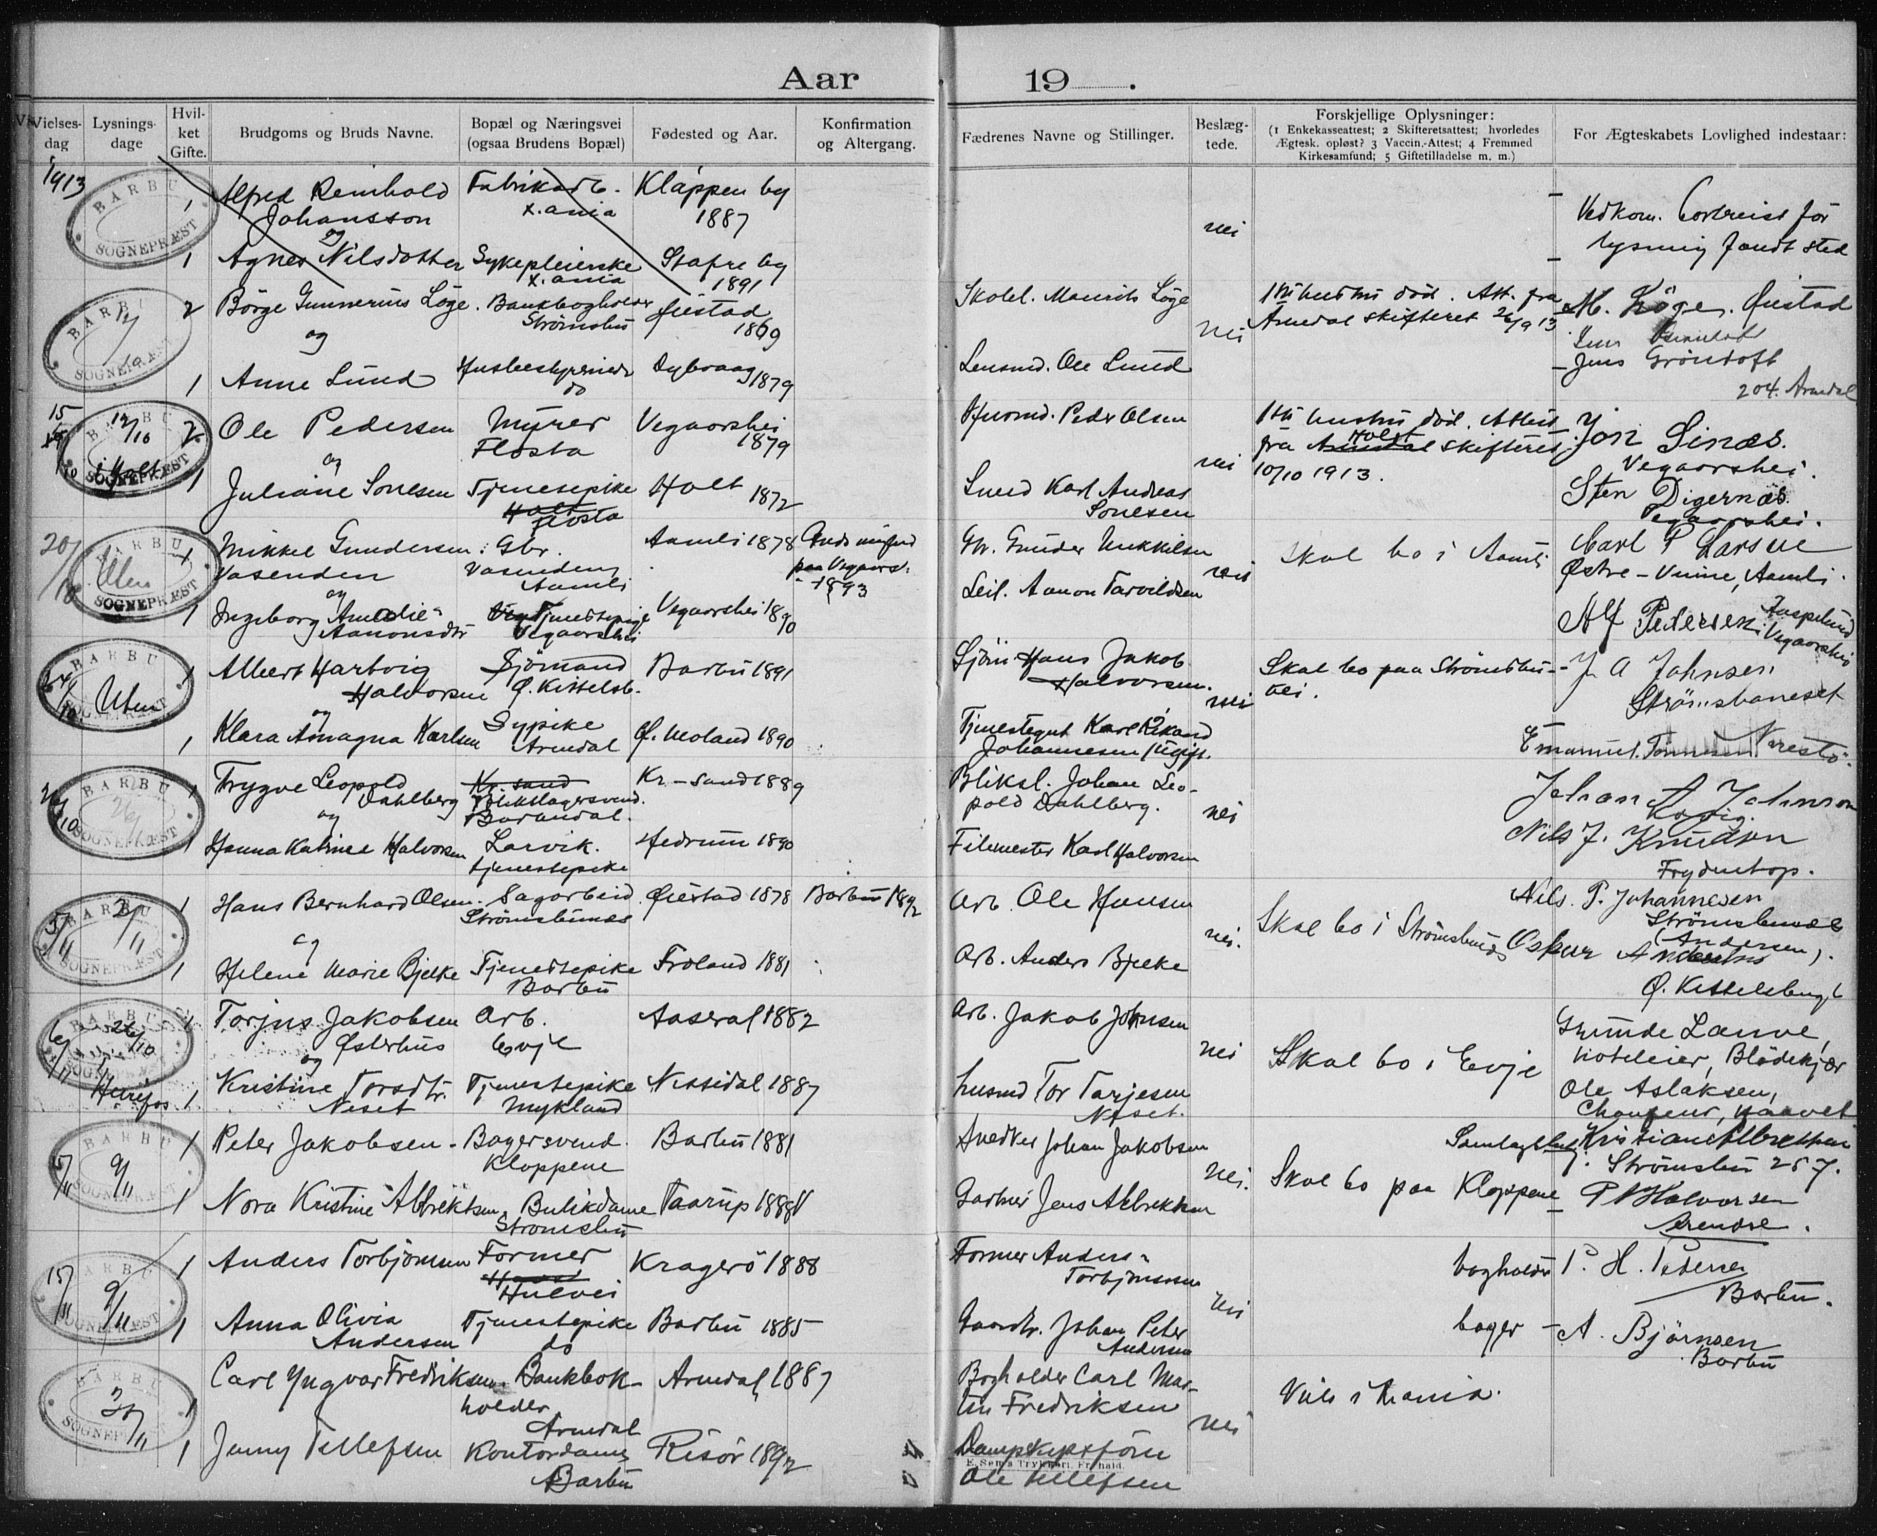 Aar
19 .
Vielses-
dag
Lysnings-
dage
Hvil-
ket
Gifte.
Brudgoms og Bruds Navne.
Bopæl og Næringsvei
(ogsaa Brudens Bopæl)
Fødested og Aar.
Konfirmation
og Altergang.
Fædrenes Navne og Stillinger.
Beslæg-
tede.
Forskjellige Oplysninger:
(1 Enkekasseattest; 2 Skifteretsattest; hvorledes
Ægtesk. opløst? 3 Vaccin.-Attest; 4 Fremmed
Kirkesamfund; 5 Giftetilladelse m. m.)
For Ægteskabets Lovlighed indestaar:
1913
BARBU
SOGNEPRÆST
1
Alfred Reinhold
Johansson
og
Fabrikarb.
X.ania
Klappen by
1887
nei
Vedkom. bortreist før
lysning fandt sted
1
Agnes Nilsdotter
Sykepleierske
X.ania
Stafre by
1891
BARBU
SOGNEPRÆST
2
Børge Gunnerius Løge
og
Bankbogholder
Strømsbu
Øiestad
1869
Skolel. Maurits Løge
nei
1ste hustru død. Att. fra
Arendal skifteret 26/9 13
M. Løge, Øiestad
1
Anne Lund
Husbestyrerinde
do
Dybvaag 1879
Lensmd. Ole Lund
Jens Grøndoft
204. Arendal
15
BARBU
SOGNEPRÆST
12/10
i Holt
2
Ole Pedersen
og
Myrer
Flosta
Vegaarshei
1879
Husmd. Peder Olsen
nei
1ste hustru død. Attest
fra Arendal Holt skifteret
10/10 1913.
Jon Linås.
Vegaarshei.
1
Juliane Sonesen
Tjenestepike
Holt
Flosta
Holt 1872
Smed Karl Andreas
Sonesen
Sten Digernæs
Vegaarshei.
20/10
BARBU
SOGNEPRÆST
Uten
1
Mikkel Gundersen
Vasenden
og
Gbr.
Vasenden,
Aamli
Aamli 1878
paa Vegaars.
1893
Gbr. Gunder Mikkelsen
nei
Skal bo i Aamli
Carl P Larsen
Østre-Vimme, Aamli.
1
Ingeborg Amalie
Aanonsdtr
Tjenestepige
Vegaarshei
Vegaarshei 1890
Leil. Aanon Tarvildsen
Alf Pedersen
Haspelund
Vegaarshei
24/10
BARBU
SOGNEPRÆST
Uten
1
Albert Hartvig
Halvorsen
og
Sjømand
Ø. Kittelsb.
Barbu 1891
Sjøm Hans Jakob
Halvorsen.
nei
Skal bo paa Strømsbu-
nei.
J A Johnsen
Strømsbuneset
1
Klara Amagna Karlsen
Sypike
Arendal
Ø. Moland 1890
Tjenestegut Karl Rikard
Johannesen, ugift.
Emanuel Tønnesen Narestø.
26/10
BARBU
SOGNEPRÆST
26/
1
Trygve Leopold
Dahlberg
og
Kr.sand
Blikslagersvend.
Barbudal.
Kr-sand 1889
Bliksl. Johan Leo-
pold Dahlberg.
nei
Johan A Johnson
1
Hanna Katrine Halvorsen
Larvik.
tjenestepike
Hedrum 1890
Filemester Karl Halvorsen
Nils J. Knudsen
Frydentop.
5/11
BARBU
SOGNEPRÆST
2/11
1
Hans Bernhard Olsen
og
Sagarbeid.
Strømsbunes
Øiestad 1878
Barbu 1892
Arb. Ole Hansen
nei.
Skal bo i Strømsbunes
Nils P. Johannesen
Strømsbunes
1
Helene Marie Bjelke
Tjenestepike
Barbu
Froland 1881
Arb. Anders Bjelke
Oskar Andersen
(Andersen).
Ø. Kittelsbugt
6/11
BARBU
SOGNEPRÆST
26/10
i
Herefos
1
Torjus Jakobsen
Østerhus
og
Arb.
Evje
Aaseral 1882
Arb. Jakob Johnsen
nei
Skal bo i Evje
Gunde Lauve,
hoteleier, Blødekjær
1
Kristine Torsdtr.
Neset
Tjenestepike
Mykland
Nissedal 1887
husmd Tor Tarjesen
Neset.
Ole Aslaksen,
Chaufeur, Haavet
5/11
BARBU
SOGNEPRÆST
9/11
1
Peter Jakobsen
Bagersvend.
Kloppene
Barbu 1881
Snedker Johan Jakobsen
nei.
Skal bo paa Kloppene
Kristian Albretsen
Strømsbu 257.
1
Nora Kristine Albrektsen
Butikdame
Strømsbu
Taarup 1888
Gartner Jens Albrektsen
P N Halvorsen
Arendal.
15/11
BARBU
SOGNEPRÆST
9/11
1
Anders Torbjørnsen
Former
Hulvei
Kragerø 1888
Former Anders
Torbjørnsen
nei
bogholder P. H. Pedersen
Barbu.
1
Anna Olivia
Andersen
Tjenestepike
do
Barbu 1885
Gaardbr. Johan Peter
Andersen
bager - A. Bjørnsen
Barbu
BARBU
SOGNEPRÆST
30/11
1
Carl Yngvar Fredriksen
Bankbok-
holder
Arendal
Arendal 1887
Bogholder Carl Mar-
tin Fredriksen
nei
Viels i Xania.
1
Jenny Tellefsen
Kontordame
Barbu
Risør 1892
Dampskipsfører
Ole Tellefsen
E. Sem's Trykkeri, Fr.hald.